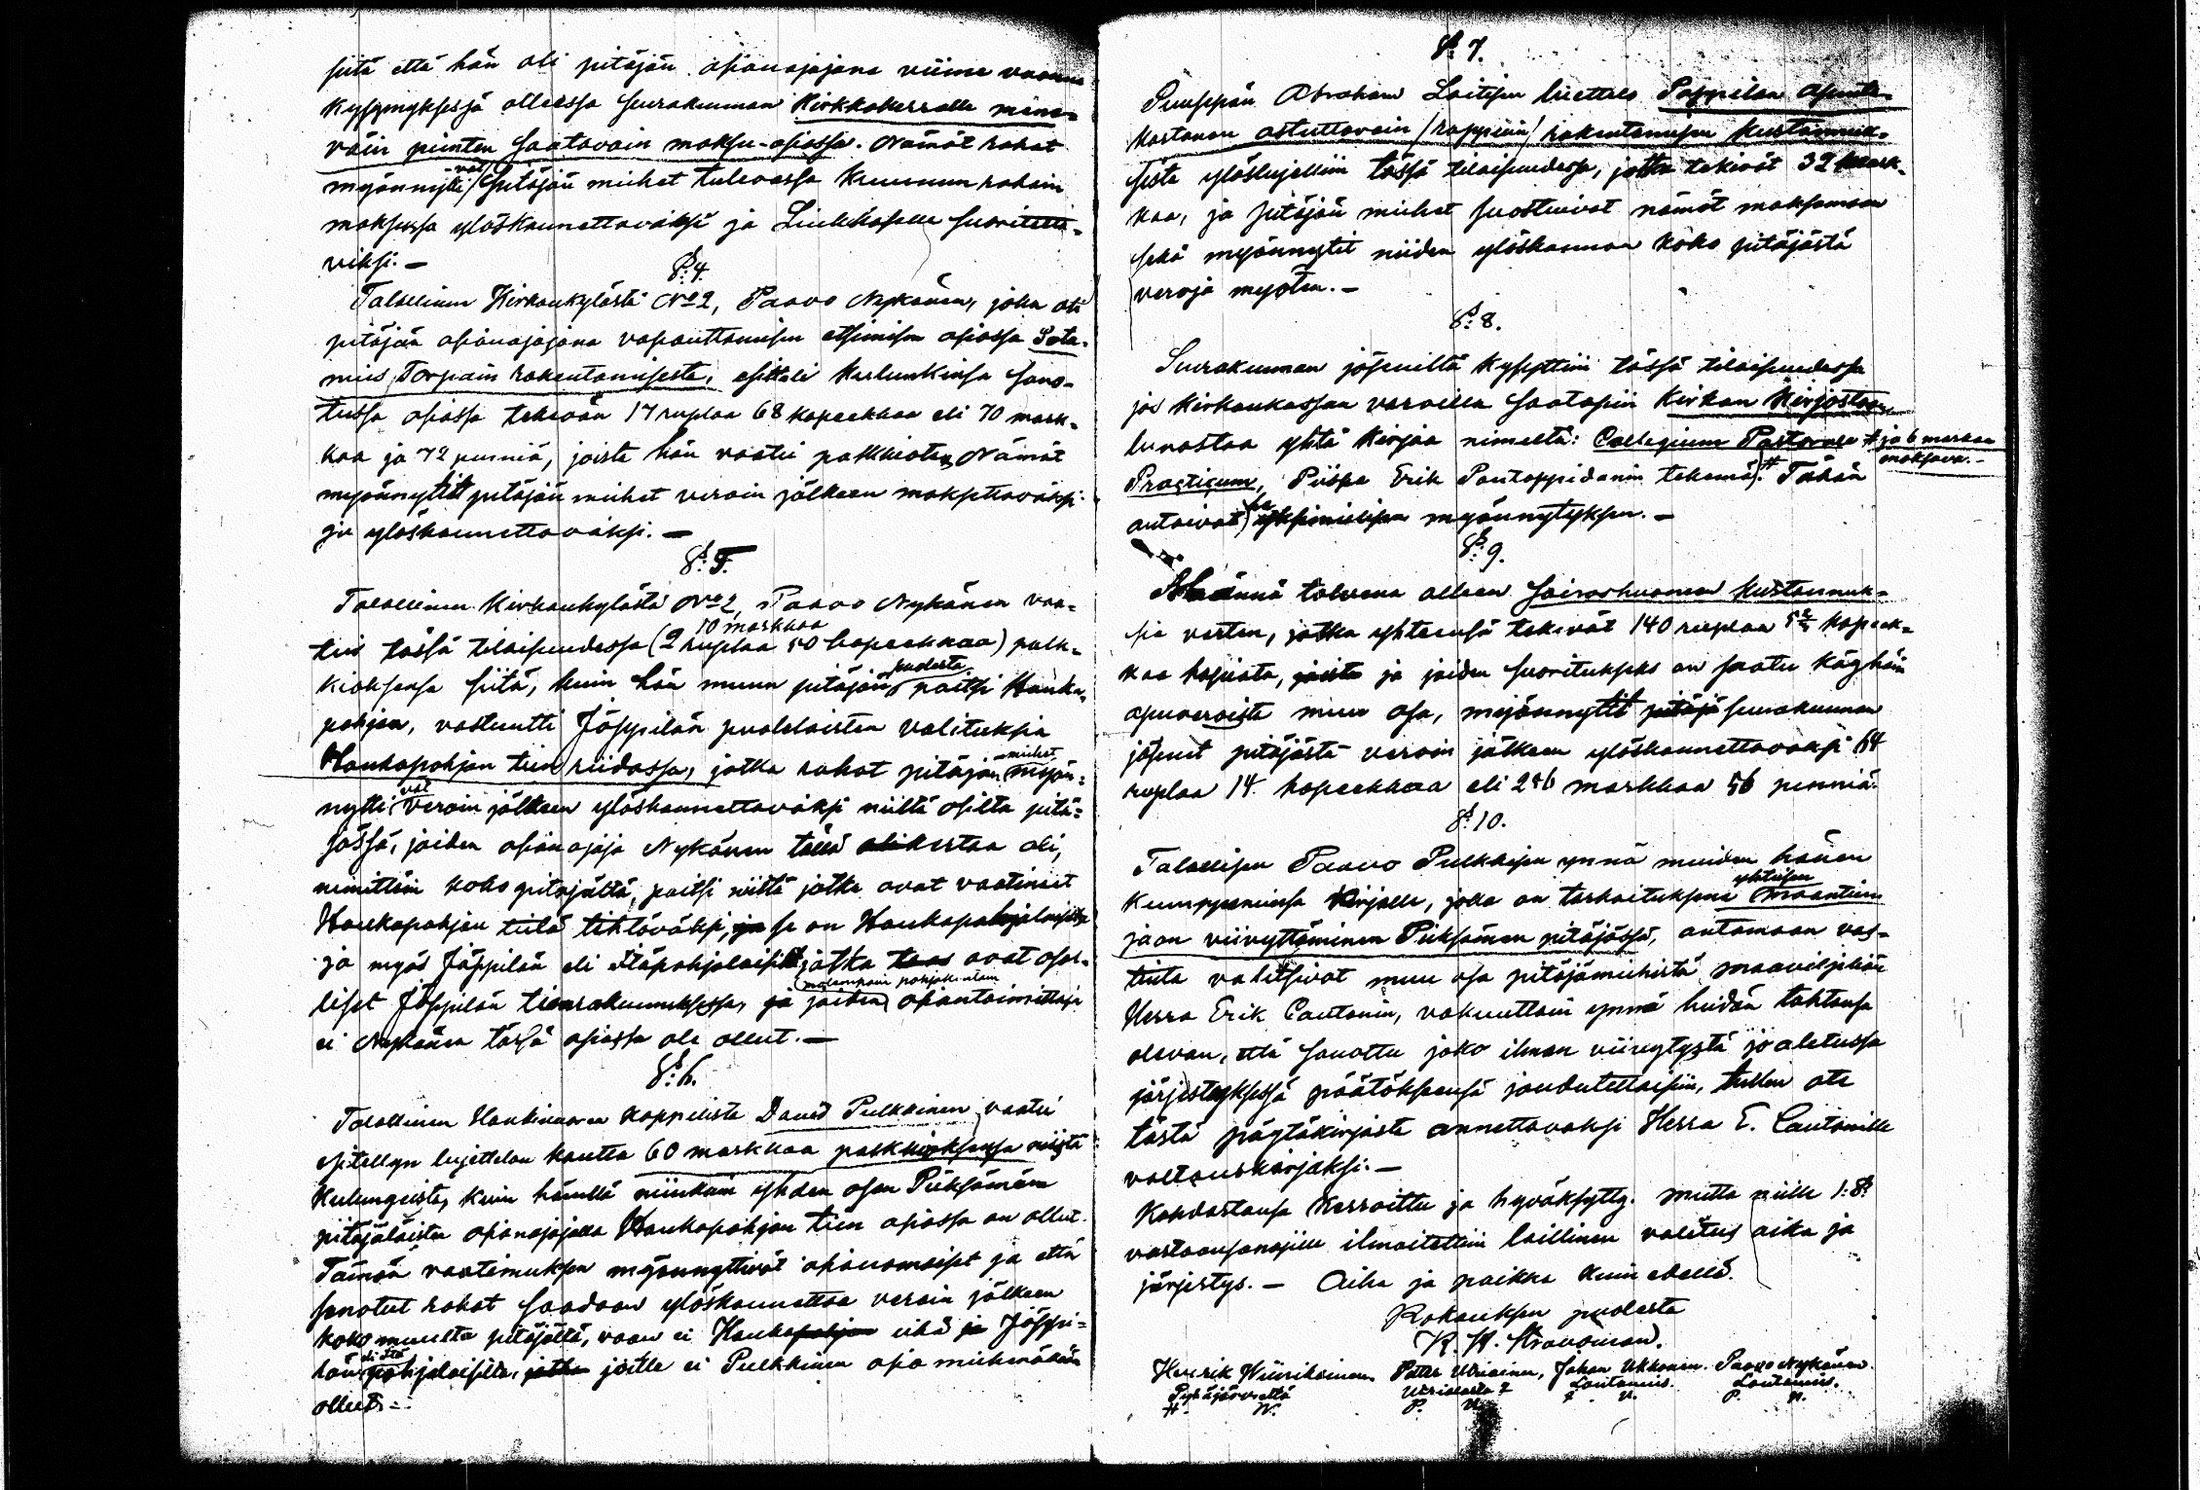 siitä että hän oli pitäjän asianajajana viime vuonna
kysymyksessä olleessa seurakunnan Kirkkoherralle mene-
väin piinten saatavain maksu-asiassa. Nämät rahat
myönnytti -vät pitäjän miehet tulevassa Kruunun rahain
maksussa ylöskannettavaksi ja Liukkoselle suoritetta-
viksi. —
§:4.
Talollinen Kirkonkylästä No 2, Paavo Nykänen, joka oli
pitäjän asianajajana vapauttamisen etsimisen asiassa Sota-
mies Torpain rakentamisesta, esitteli kulunkinsa sano-
tussa asiassa tekevän 17 ruplaa 68 kopeekkaa eli 70 mark-
kaa ja 72 penniä, joista hän vaatii palkkiota, Nämät
myönnytit pitäjän miehet veroin jälkeen maksettavaksi
ja ylöskannettavaksi. —
§:5.
Talollinen Kirkonkylästä No 2, Paavo Nykänen vaa-
tii tässä tilaisuudessa (2 ruplaa 50 kopeekkaa) 10 markkaa palk-
kioksensa siitä, kuin hän muun pitäjän puolesta paitsi Hauka-
pohjan, vastuutti Jäppilän puolelaisten valituksia
Haukapohjan tien riidassa, jotka rahat pitäjän miehet myön-
nytti -vät veroin jälkeen ylöskannettavaksi niiltä osilta pitä-
jässä, joiden asianajaja Nykänen tällä kertaa oli,
nimittäin koko pitäjältä, paitsi niiltä jotka ovat vaatineet
Haukapohjan tietä tehtäväksi, ja se on Haukapohjalaisilta
ja myös Jäppilän eli Itäpohjalaisilta jotka taas ovat osal-
liset Jäppilän tienrakennuksessa, ja joiden molempain pohjakuntain asiantoimittaja
ei Nykänen tässä asiassa ole ollut. —
§:6.
Talollinen Haukivuoren kappelista Daved Pulkkinen vaatii
esitellyn luettelon kautta 60 markkaa palkkioksensa niistä
kulungeista, kuin hänellä niinkuin yhden osan Pieksämäen
pitäjäläisten asianajajalla Haukapohjan tien asiassa on ollut.
Tämän vaatimuksen myönnyttivät asianomaiset ja että
sanotut rahat saadaan ylöskannettaa veroin jälkeen
koko muulta pitäjältä, vaan ei Haukapohjan eikä ja Jäppi-
län eli Itä pohjalaisilta, jotka joille ei Pulkkinen asia miehenäkään
ollut. —
§:7.
Puusepän Abraham Laitisen luettelo Pappilan Asunto-
kartanon astuttavain (rappuin) rakentamisen kustannuk-
sista ylösluettiin tässä tilaisuudessa, jotka tekivät 32 mark-
kaa, ja pitäjän miehet suostuivat nämät maksamaan
sekä myönnytit niiden ylöskannon koko pitäjästä
veroja myöten. —
§:8.
Seurakunnan jäseniltä kysyttiin tässä tilaisuudessa
jos Kirkonkassan varoilla saataisiin Kirkon Kirjastoon
lunastaa yhtä kirjaa nimeltä: Collegium Pastorale # ja 6 markkaa
maksava. —
Practicum, Piispa Erik Pontoppidanin tekemä #. Tähän
antoivat he yksimielisen myönnytyksen. —
§:9.
Männä talvena olleen sairashuoneen kustannuk-
sia varten, jotka yhteensä tekivät 140 ruplaa kopeek-
kaa hopiata, joista ja joiden suoritukseks on saatu käyhäin
apuvaroista muu osa, myönnytit pitäjä seurakunnan
jäsenet pitäjästä veroin jälkeen ylöskannettavaksi 64
ruplaa 14 kopeekkaa eli 256 markkaa 56 penniä.
§:10.
Talollisen Paavo Pulkkisen ynnä muiden hänen
kumppaniensa kirjalle, jolla on tarkoituksena yhteisen maantien
jaon viivyttäminen Pieksämän pitäjässä, antamaan vas-
tinta valitsivat muu osa pitäjämiehistä maaviljeliän
Herra Erik Cautonin, vakuuttain ynnä heidän tahtonsa
olevan, että sanottu jako ilman viivytystä jo aletussa
järjestyksessä päätöksensä joudutettaisiin, tullen ote
tästä pöytäkirjasta annettavaksi Herra E. Cautonille
valtauskirjaksi. —
Kohdastansa kerrottu ja hyväksytty. mutta niille 1: §:
vastaansanojille ilmoitettiin laillinen valitus aika ja
järjestys. — Aika ja paikka kuin edellä.
Kokouksen puolesta
K. H. Stråhlman.
Henrik Wiinikainen Petter Ukkoinen, Johan Ukkonen. Paavo Nykänen
Pyhäjärveltä Lautamies. Lautamies.
H. W. P. U. P. N.